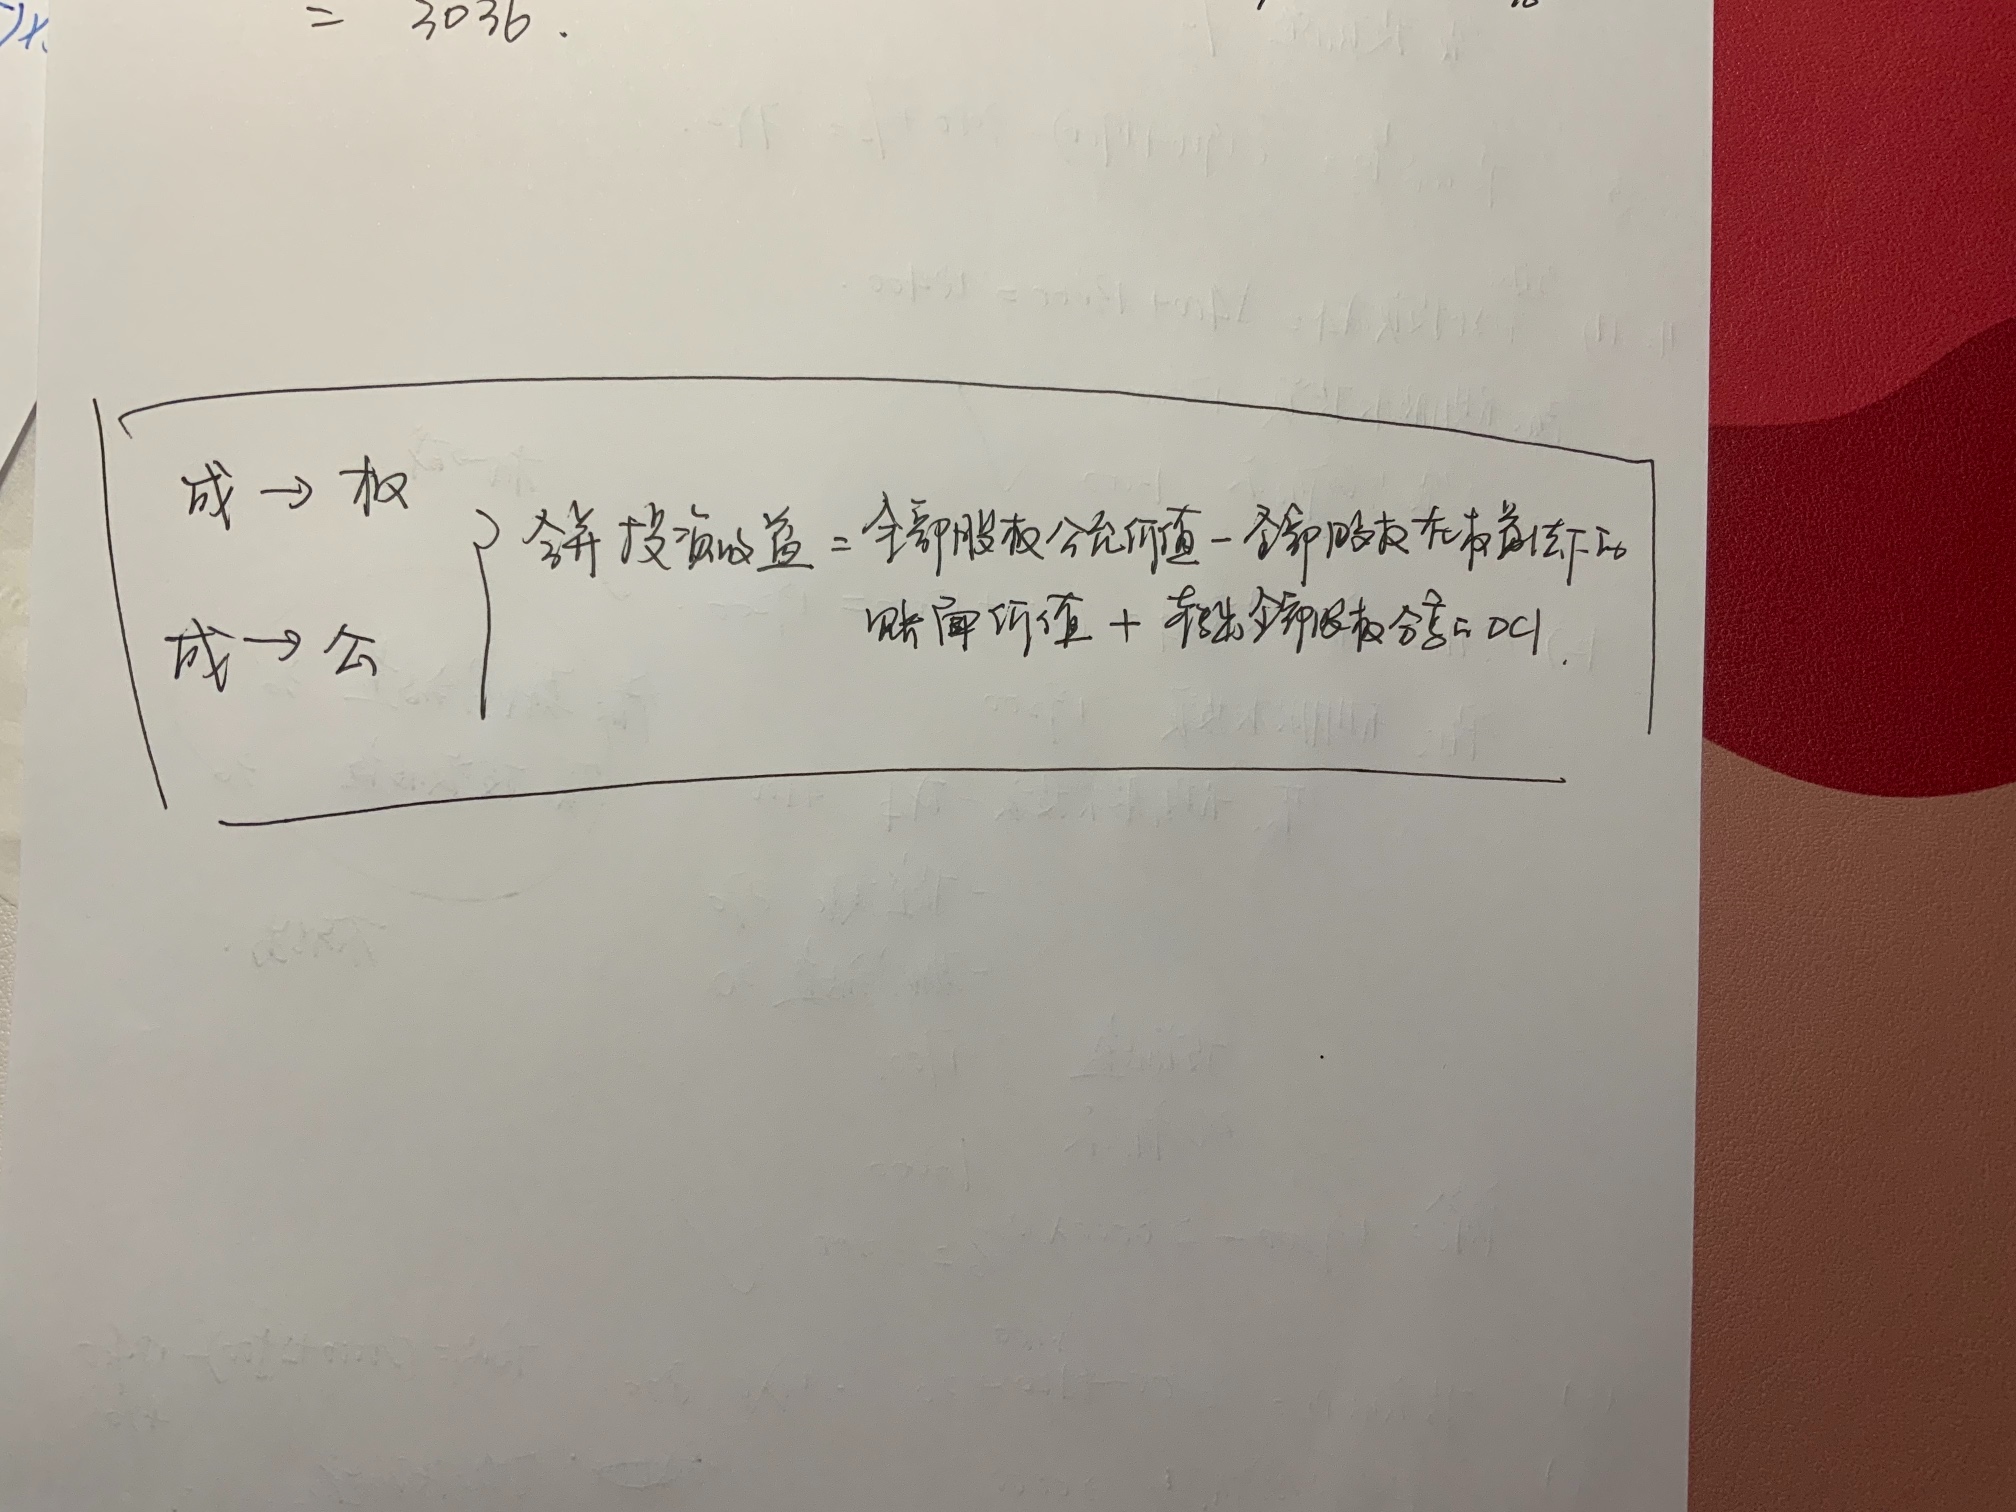 = 3036.
成 → 权
合并投资收益 = 全部股权公允价值 - 全部股权在权益法下的
账面价值 + 转出全部股权分享的OCI.
成 → 公